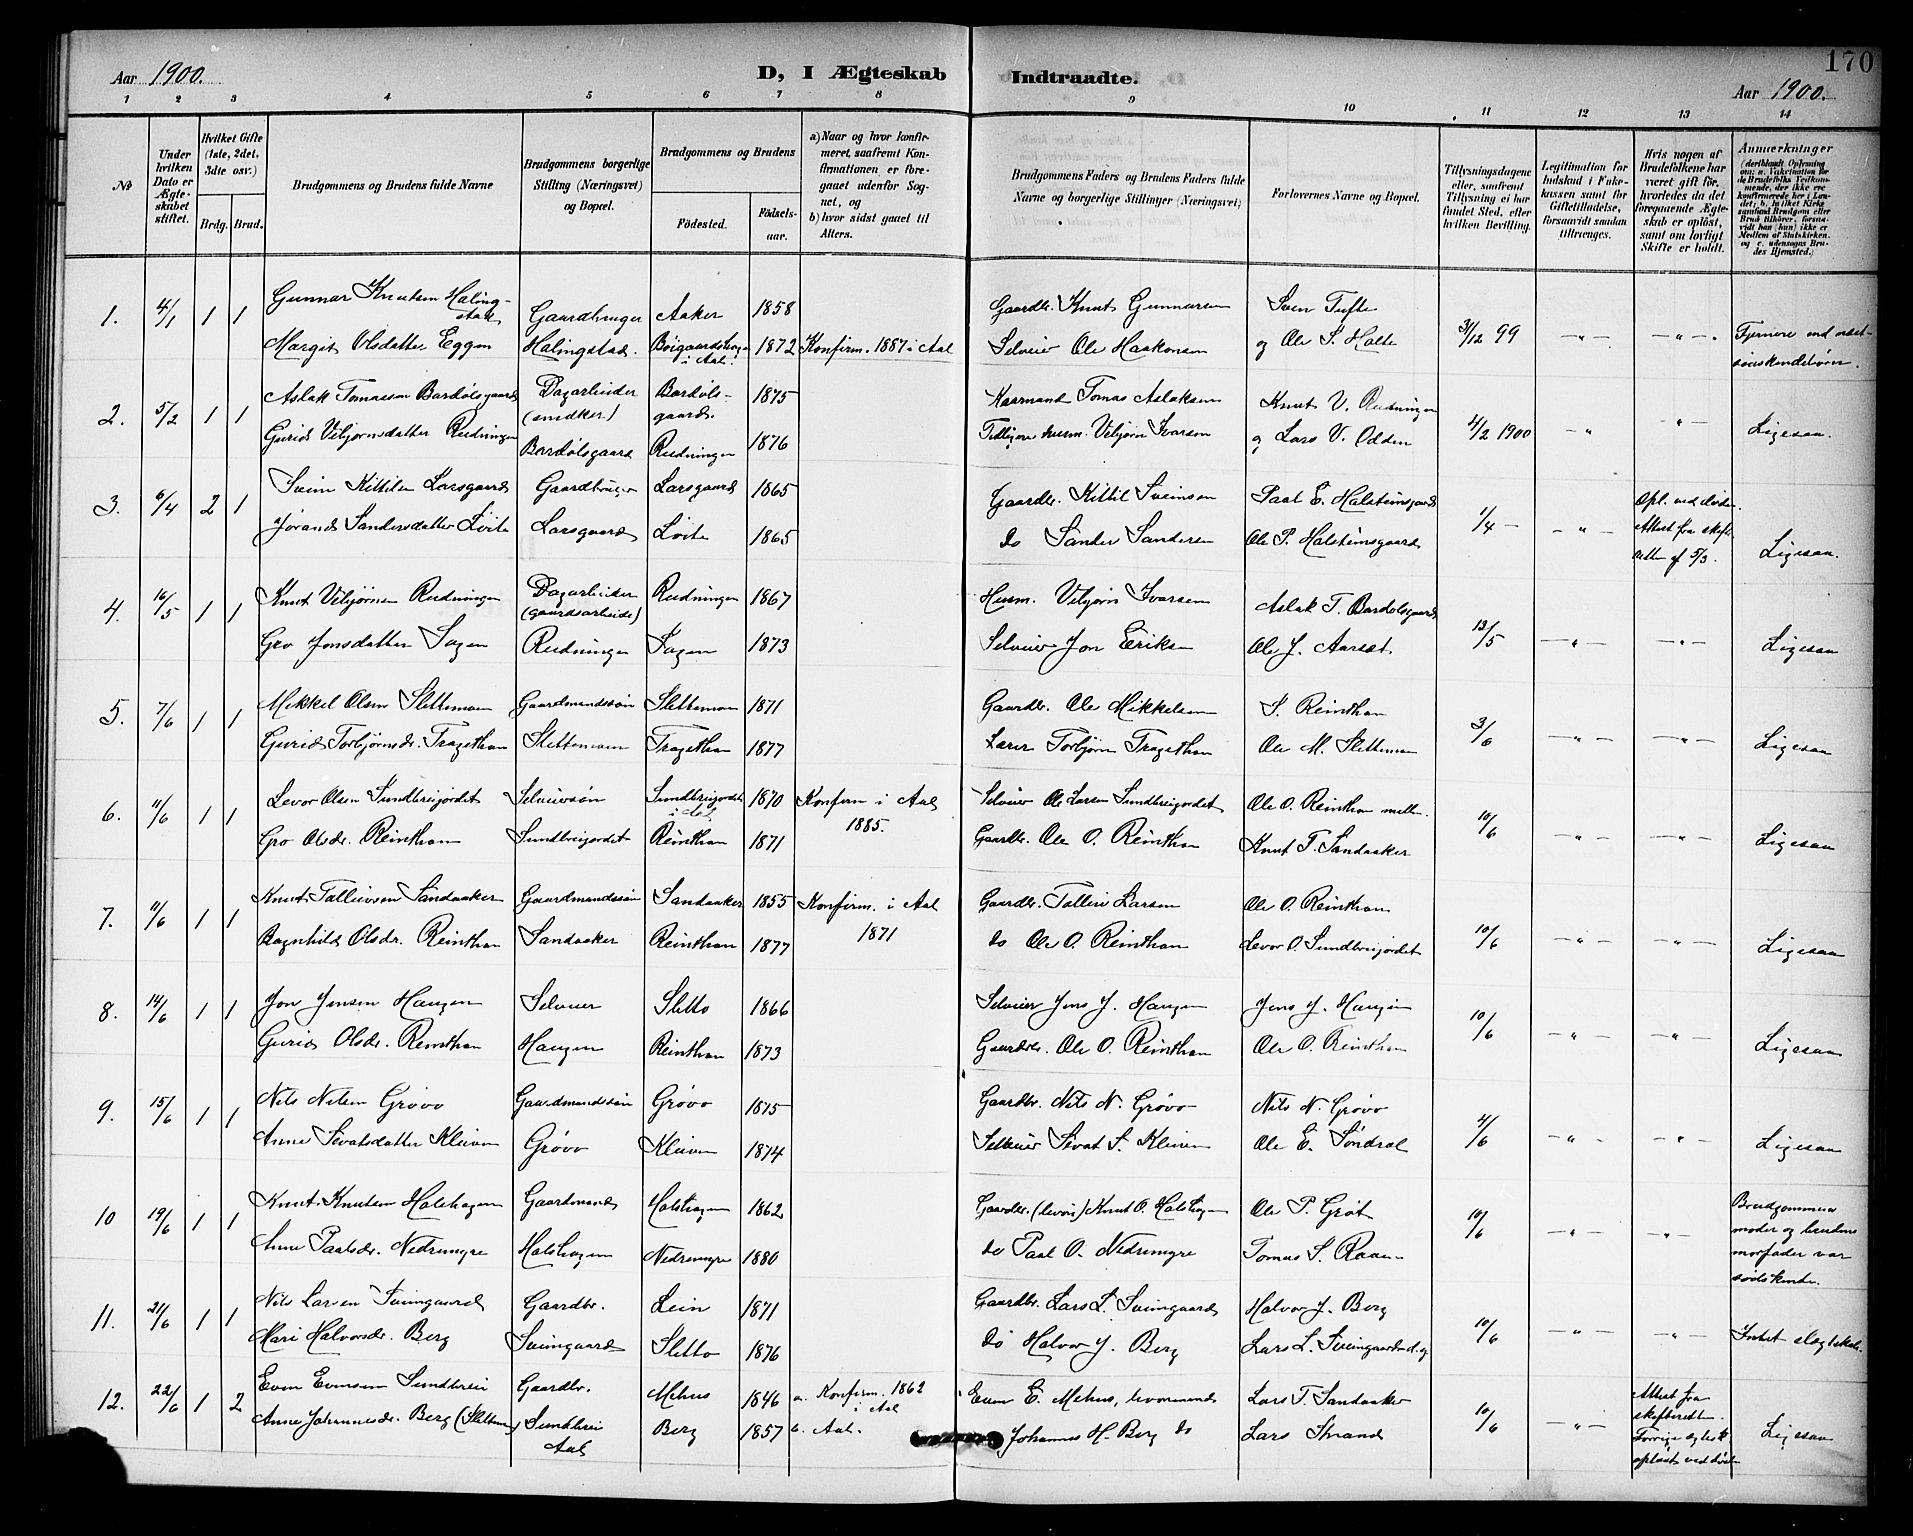 170
Aar 1900.
D, I Ægteskab Indtraadte.
Aar 1900.
1 2 3 4 5 6 7 8 9 10 11 12 13 14
№
Under hvilken Dato er Ægteskabet stiftet.
Hvilket Gifte (1ste, 2det, 3dte osv.)
Brdg. Brud.
Brudgommens og Brudens fulde Navne
Brudgommens borgerlige Stilling (Næringsvei) og Bopæl.
Brudgommens og Brudens
Fødested. Fødselsaar.
a) Naar og hvor konfirmeret, saafremt Konfirmationen er foregaaet udenfor Sognet, og
b) hvor sidst gaaet til Alters.
Brudgommens Faders og Brudens Faders fulde Navne og borgerlige Stillinger (Næringsvei)
Forlovernes Navne og Bopæl.
Tillysningsdagene eller, saafremt Tillysning ei har fundet Sted, efter hvilken Bevilling.
Legitimation for Indskud i Enkekassen samt for Giftetilladelse, forsaavidt saadan tiltrænges.
Hvis nogen af Brudefolkene har været gift før, hvorledes da det foregaaende Ægteskab er opløst, samt om lovligt Skifte er holdt.
Anmærkninger
1. 4/1 1 1 Gunnar Knutsen Halingstad Gaardbruger Aaker 1858 Gaardbr. Knut Gunnarsen Sven Tufte
Margit Olsdatter Eggen Halingstad. i Aal. 1872 Konfirm. 1887 i Aal Selveier Ole Haakonsen og Ole S. Holte 31/12 99 —"— —"—
2. 5/2 1 1 Aslak Tomassen Bardølsgaard Dagarbeider (snedker) Bardølsgaard. 1875 Kaarmand Tomas Aslaksen Knut V. Rudningen
Gurid Vebjørnsdatter Rudningen Bardølsgaard Rudningen 1876 Tidligere husm. Vebjørn Ivarsen og Lars V. Odden 4/2 1900 —"— —"— Ligesaa.
3. 6/4 2 1 Svein Kittilsen Larsgaard Gaardbruger Larsgaard 1865 Gaardbr. Kittil Sveinsen Paal E. Halsteinsgaard
Jørand Sandersdatter Løite Larsgaard Løite 1865 do Sander Sandersen Ole P. Halsteinsgaard 1/4 — —"— Opl. ved døden. Attest fra skifteretten af 5/3. Ligesaa.
4. 16/5 1 1 Knut Vebjørnsen Rudningen Dagarbeider (gaardsarbeide) Rudningen 1867 Husm. Vebjørn Ivarsen Aslak T. Bardølsgaard
Gro Jonsdatter Sagen Rudningen Sagen 1873 Selveier Jon Eriksen Ole J. Aarset 13/5 —"— —"— Ligesaa
5. 7/6 1 1 Mikkel Olsen Slettemoen Gaardmandssøn Slettemoen 1871 Gaardbr. Ole Mikkelsen S. Reinthon
Gurid Torbjørnsdr. Tragethon Slettemoen Tragethon 1877 Lærer Torbjørn Tragethon Ole M. Slettemoen 3/6 —"— —"— Ligesaa
6. 11/6 1 1 Levor Olsen Sundbreijordet Selveiersøn Sundbreijordet i Aal. 1870 Konfirm i Aal 1885. Selveier Ole Larsen Sundbreijordet Ole O. Reinthon mellem.
Gro Olsdr. Reinthon Sundbreijordet Reinthon 1871 Gaardbr. Ole O. Reinthon Knut T. Sandaaker 10/6 —"— —"— Ligesaa
7. 11/6 1 1 Knut Tolleivsen Sandaaker Gaardmandssøn Sandaaker 1855 Konfirm. i Aal 1871 Gaardbr. Tolleiv Larsen Ole O. Reinthon
Ragnhild Olsdr. Reinthon Sandaaker Reinthon 1877 do Ole O. Reinthon Levor O. Sundbreijordet 10/6 —"— —"— Ligesaa
8. 14/6 1 1 Jon Jonsen Haugen Selveier Sletto 1866 Selveier Jons J. Haugen Jons J. Haugen
Gurid Olsdr. Reinthon Haugen Reinthon 1873 Gaardbr. Ole O. Reinthon Ole O. Reinthon 10/6 —"— —"— Ligesaa
9. 15/6 1 1 Nils Nilsen Grøvo Gaardmandssøn Grøvo 1875 Gaardbr. Nils N. Grøvo Nils N. Grøvo
Anne Sevatsdatter Kleiven Grøvo Kleiven 1874 Selveier Sevat S. Kleiven Ole E. Søndrol 4/6 —"— —"— Ligesaa
10 19/6 1 1 Knut Knutsen Holshagen Gaardmand Holshagen 1862 Gaardbr. Knut O. Holshagen Ole P. Grøt
Anne Paalsdr. Nedremyre Holshagen Nedremyre 1880 do Paal O. Nedremyre Tomas S. Raaen 10/6 —"— —"— Brudgommens moder og brudens morfader var sødskende.
11. 21/6 1 1 Nils Larsen Sveingaard Gaardbr. Lein 1871 Gaardbr. Lars L. Sveingaard Halvor J. Berg
Mari Halvorsdr. Berg Sveingaard Sletto 1876 do Halvor J. Berg Lars L. Sveingaard 10/6 —"— —"— Intet slegtskab.
12. 22/6 1 2 Even Evensen Sundbrei Gaardbr. Mehus 1846 a. Konfirm. 1862 i Aal Even E. Mehus, Lars T. Sandaaker
Anne Johannesdr. Berg (Slettemoen) Sundbrei Aal Berg 1857 b. Aal. Johannes H. Berg do Lars Strand 10/6 —"— Attest fra skifteretten. Forrige ægtesk. opløst ved død Ligesaa